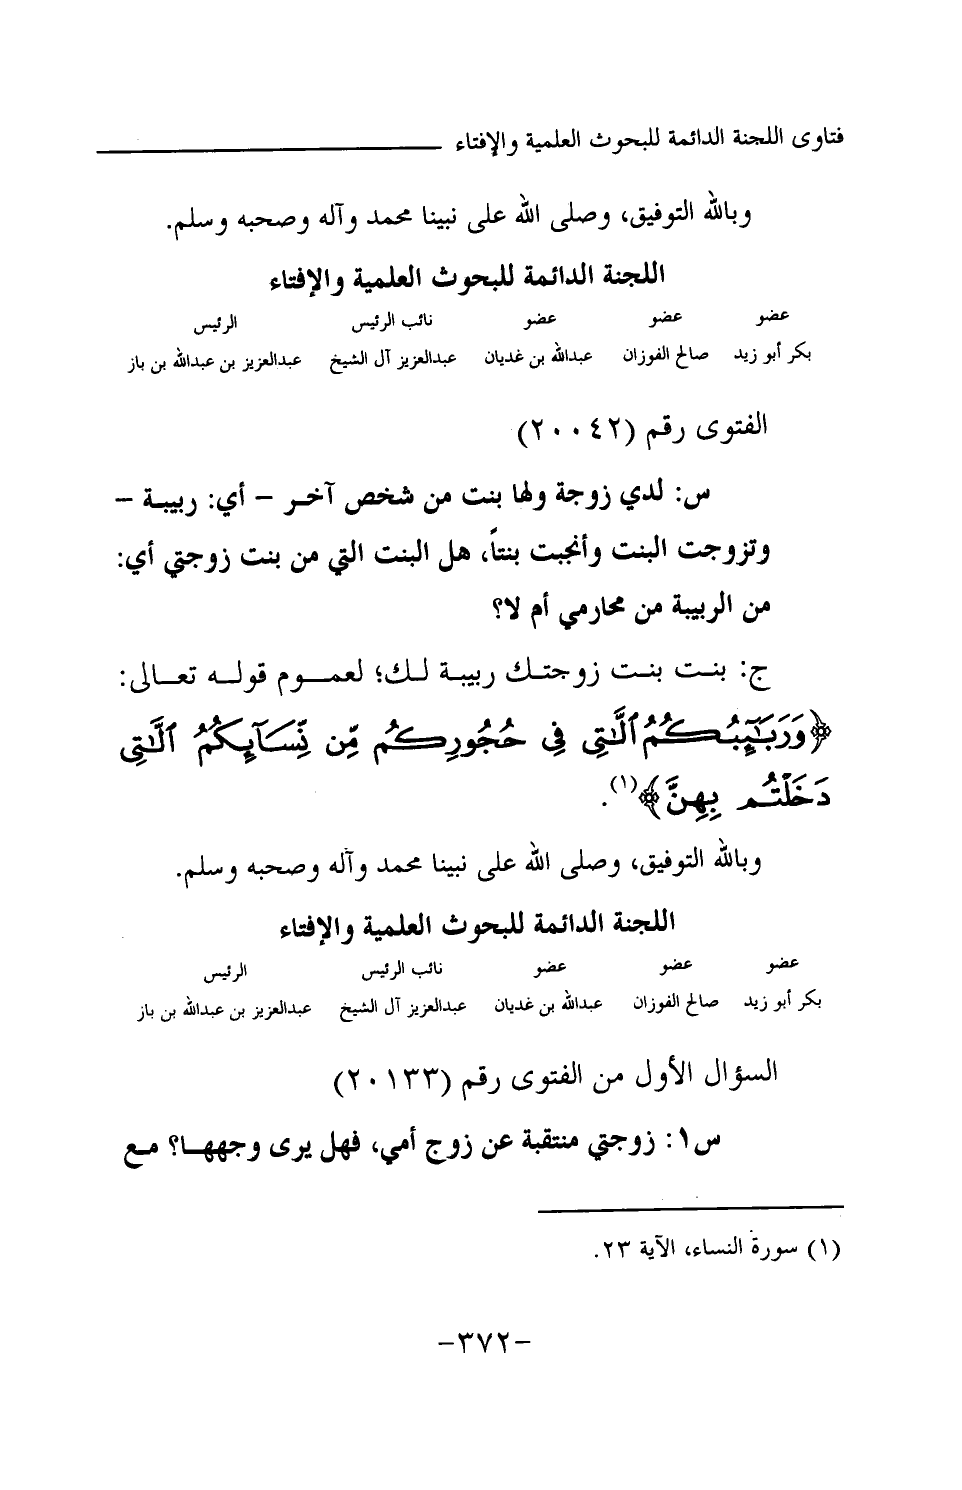 فتاوى اللجنة الدائمة للبحوث العلمية والإفتاء
وبالله التوفيق، وصلى الله على نبينا محمد وآله وصحبه وسلم.
اللجنة الدائمة للبحوث العلمية والإفتاء
عضو عضو عضو نائب الرئيس الرئيس
بكر أبو زيد صالح الفوزان عبدالله بن غديان عبدالعزيز آل الشيخ عبدالعزيز بن عبدالله بن باز
الفتوى رقم (٢٠٠٤٢)
س: لدي زوجة ولها بنت من شخص آخر – أي: ربيبة –
وتزوجت البنت وأنجبت بنتاً، هل البنت التي من بنت زوجتي أي:
من الربيبة من محارمي أم لا؟
ج: بنت بنت زوجتك ربيبة لك؛ لعموم قوله تعالى:
﴿وَرَبَٰٓئِبُكُمُ ٱلَّٰتِى فِى حُجُورِكُم مِّن نِّسَآئِكُمُ ٱلَّٰتِى
دَخَلْتُم بِهِنَّ﴾(١).
وبالله التوفيق، وصلى الله على نبينا محمد وآله وصحبه وسلم.
اللجنة الدائمة للبحوث العلمية والإفتاء
عضو عضو عضو نائب الرئيس الرئيس
بكر أبو زيد صالح الفوزان عبدالله بن غديان عبدالعزيز آل الشيخ عبدالعزيز بن عبدالله بن باز
السؤال الأول من الفتوى رقم (٢٠١٣٣)
س١: زوجتي منتقبة عن زوج أمي، فهل يرى وجهها؟ مع
(١) سورة النساء، الآية ٢٣.
–٣٧٢–